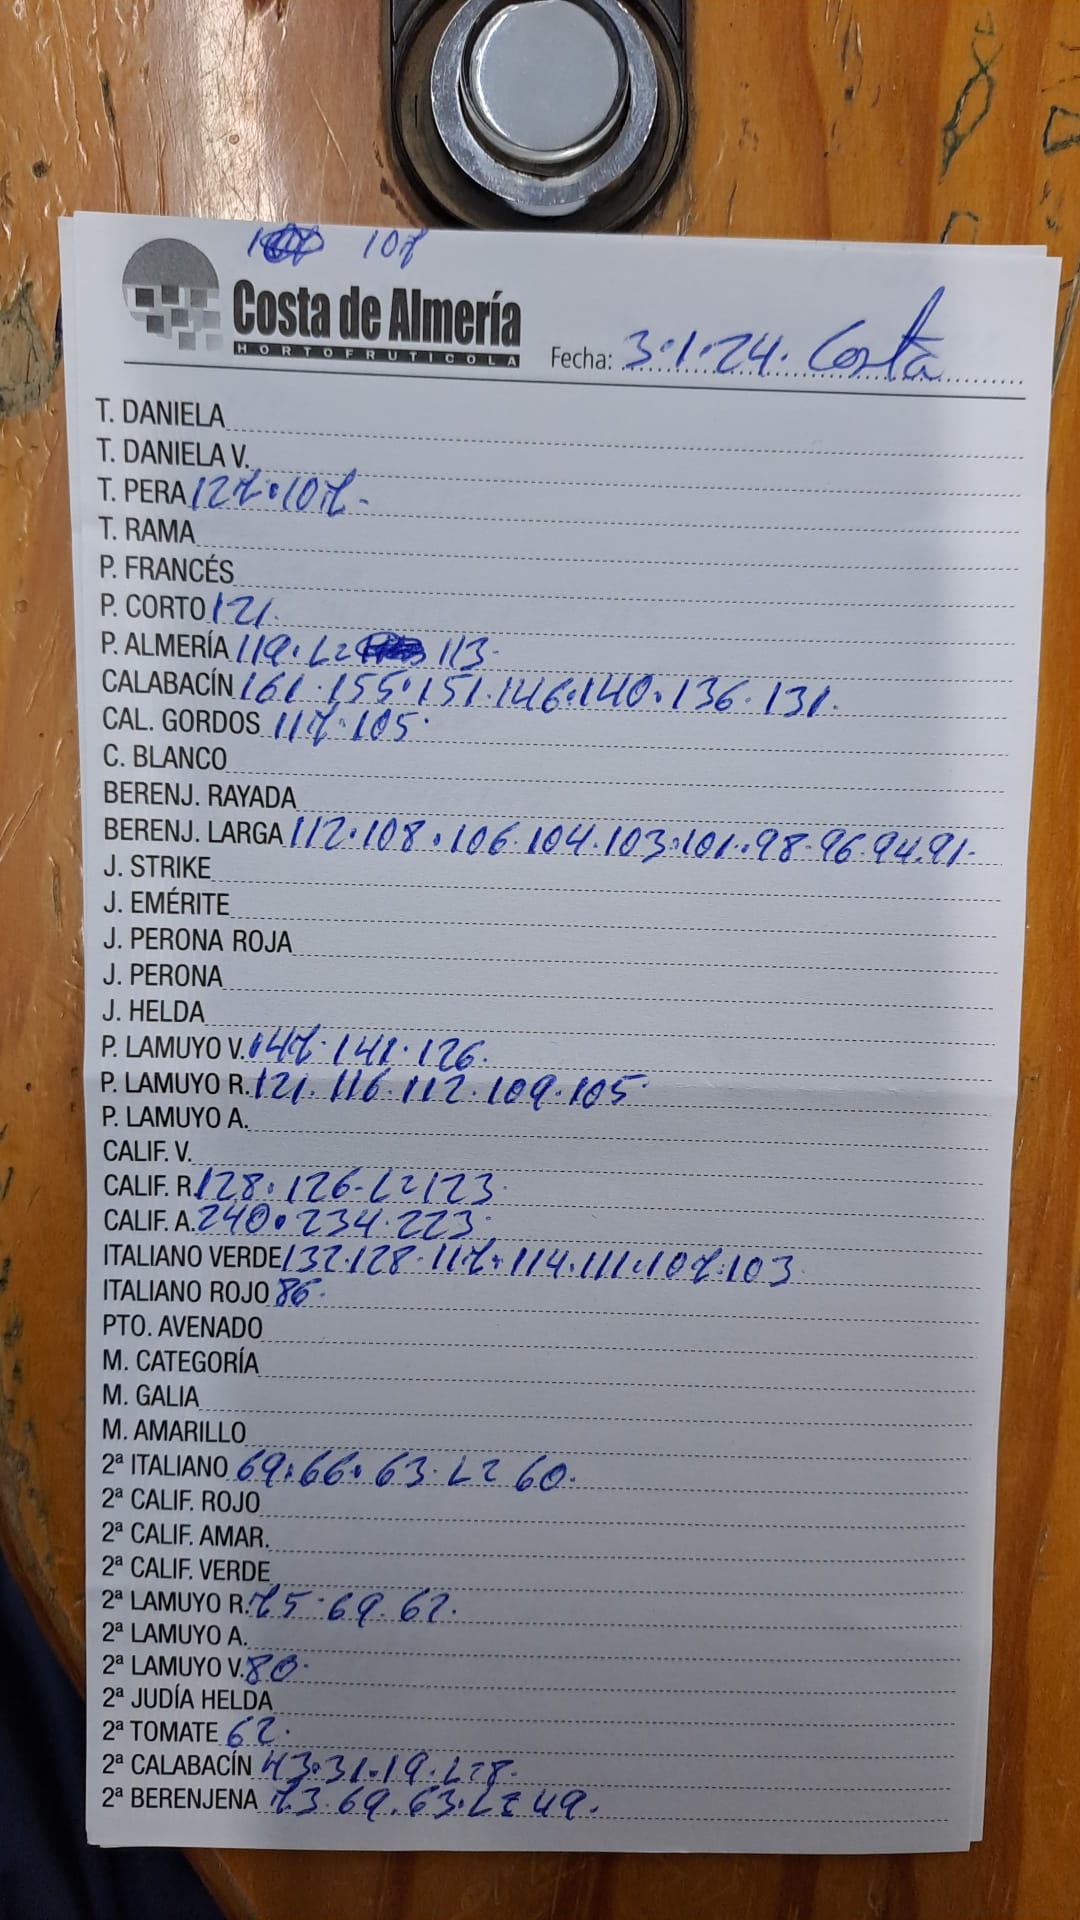 107
Costa de Almería
HORTOFRUTICOLA
Fecha: 3·1·24. Costa
T. DANIELA
T. DANIELA V.
T. PERA 127·107-
T. RAMA
P. FRANCÉS
P. CORTO 121.
P. ALMERÍA 119. L= 113-
CALABACÍN 161·155·151·146·140·136·131.
CAL. GORDOS 117·105·
C. BLANCO
BERENJ. RAYADA
BERENJ. LARGA 112·108·106·104·103·101·98·96·94·91-
J. STRIKE
J. EMÉRITE
J. PERONA ROJA
J. PERONA
J. HELDA
P. LAMUYO V. 147·141·126.
P. LAMUYO R. 121·116·112·109·105·
P. LAMUYO A.
CALIF. V.
CALIF. R. 128·126-L=123·
CALIF. A. 240·234·223·
ITALIANO VERDE 132·128·117·114·111·107·103
ITALIANO ROJO 86·
PTO. AVENADO
M. CATEGORÍA
M. GALIA
M. AMARILLO
2ª ITALIANO 69·66·63·L=60.
2ª CALIF. ROJO
2ª CALIF. AMAR.
2ª CALIF. VERDE
2ª LAMUYO R. 75·69·62.
2ª LAMUYO A.
2ª LAMUYO V. 80·
2ª JUDÍA HELDA
2ª TOMATE 62·
2ª CALABACÍN 43·31·19·L=8·
2ª BERENJENA 73·69·63·L=49.